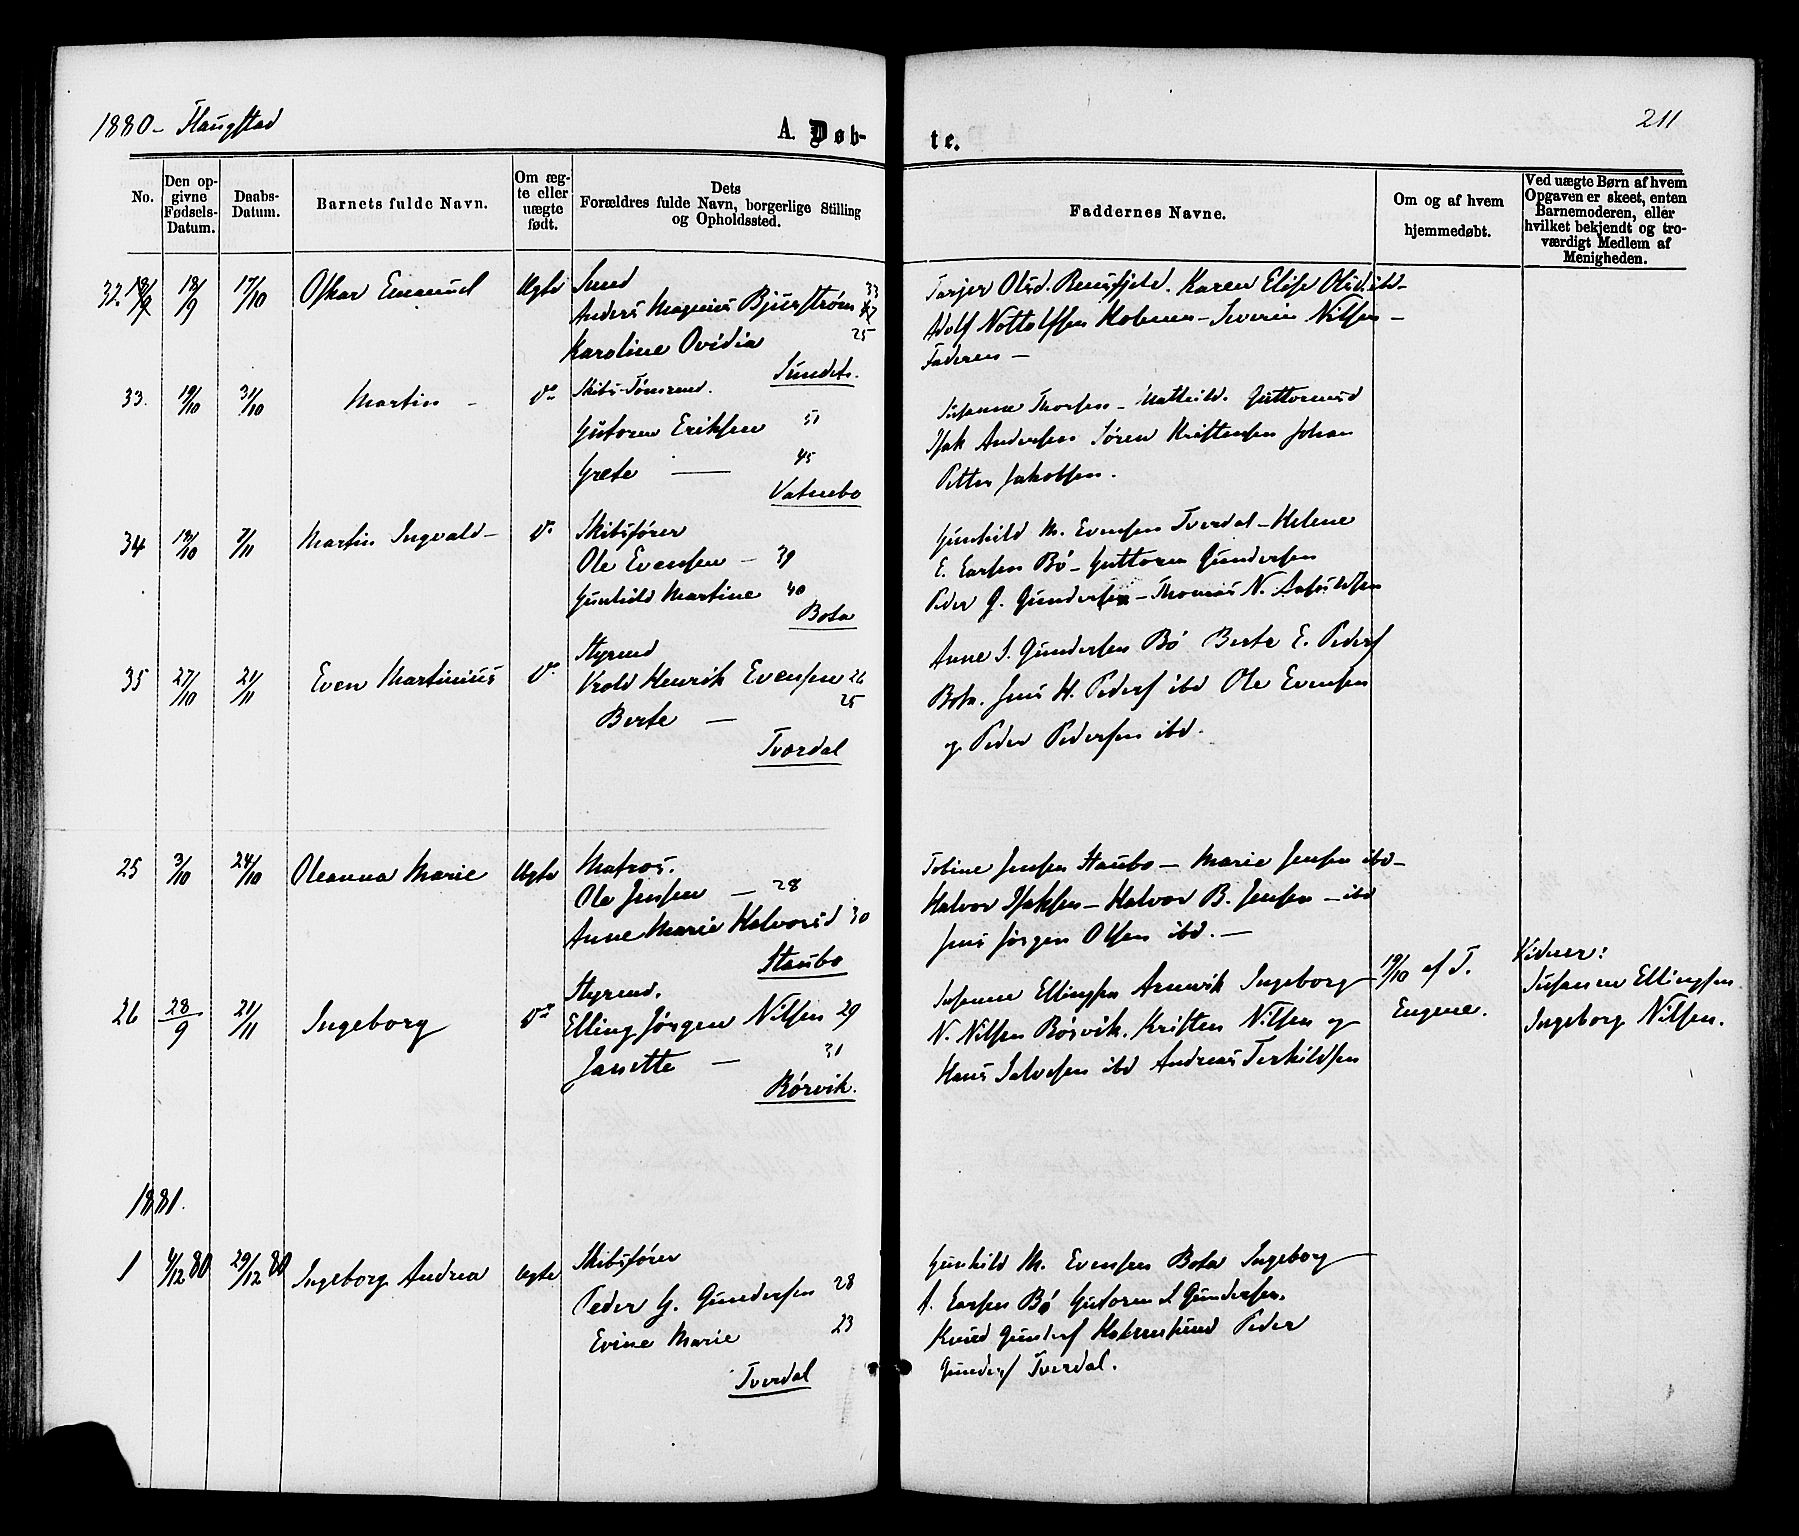 1880 - Flangstad
A. Døb-
te.
211
No.
Den op-
givne
Fødsels-
Datum.
Daabs-
Datum.
Barnets fulde Navn.
Om æg-
te eller
uægte
født.
Dets
Forældres fulde Navn, borgerlige Stilling
og Opholdssted.
Faddernes Navne.
Om og af hvem
hjemmedøbt.
Ved uægte Børn af hvem
Opgaven er skeet, enten
Barnemoderen, eller
hvilket bekjendt og tro-
værdigt Medlem af
Menigheden.
32. 18/9 17/10 Oskar Emanuel Ægte Smed
Anders Magnus Bjurstrøm 33
Karoline Ovidia 25
Sundet.
Tarjer Olsd. Karen Elise Olsd ibd -
Adolf Nottolfsen Holmen - Severin Nilsen -
Faderen -
33. 19/10 31/10 Martin - do Skibs-Tømrmd.
Gutorm Eriksen 51
Grete — 45
Vatnebo
Susanne Thorsen - Mathild. Guttormsd
Isak Andersen Søren Kristensen Johan
Petter Jakobsen.
34 19/10 7/11 Martin Ingvald - do Skibsfører
Ole Evensen - 39
Gunhild Martine 40
Bota
Gunhild M. Evensen Tverdal - Helene
E. Larsen Bø - Guttorm Gundersen
Peder G. Gundersen - Thomas N.
35 27/10 21/11 Even Martinius do Styrmd
Krold Henrik Evensen 26
Berte — 25
Tverdal
Anne S. Gundersen Bø Berte E. Peders
Bota. Jens H. Peders ibd Ole Evensen
og Peder Pedersen ibd.
25 3/10 24/10 Oleanna Marie Ægte Matros.
Ole Jensen - 28
Anne Marie Halvorsd 30
Staubo
Tobine Jensen Staubo - Marie Jensen ibd -
Halvor Isaksen - Halvor B. Jensen - ibd
Jens Jørgen Olsen ibd. -
26 28/9 21/11 Ingeborg do Styrmd.
Elling Jørgen Nilsen 29
Janette — 31
Børvik.
Susanne Ellingsen Arnevik Ingeborg
N. Nilsen Børvik. Kristen Nilsen og
Hans Salvesen ibd Andreas Terkildsen
19/10 af T.
Eugene.
Vidner:
Susanne Ellingsen
Ingeborg Nilsen.
1881.
1 4/12 80 29/12 80 Ingeborg Andrea Ægte Skibsfører
Peder G. Gundersen 28
Evine Marie 23
Tverdal
Gunhild M. Evensen Bota Ingeborg
A. Larsen Bø Gutorm S Gundersen.
Knud Gunders Holmesund Peder
Gunders Tverdal.